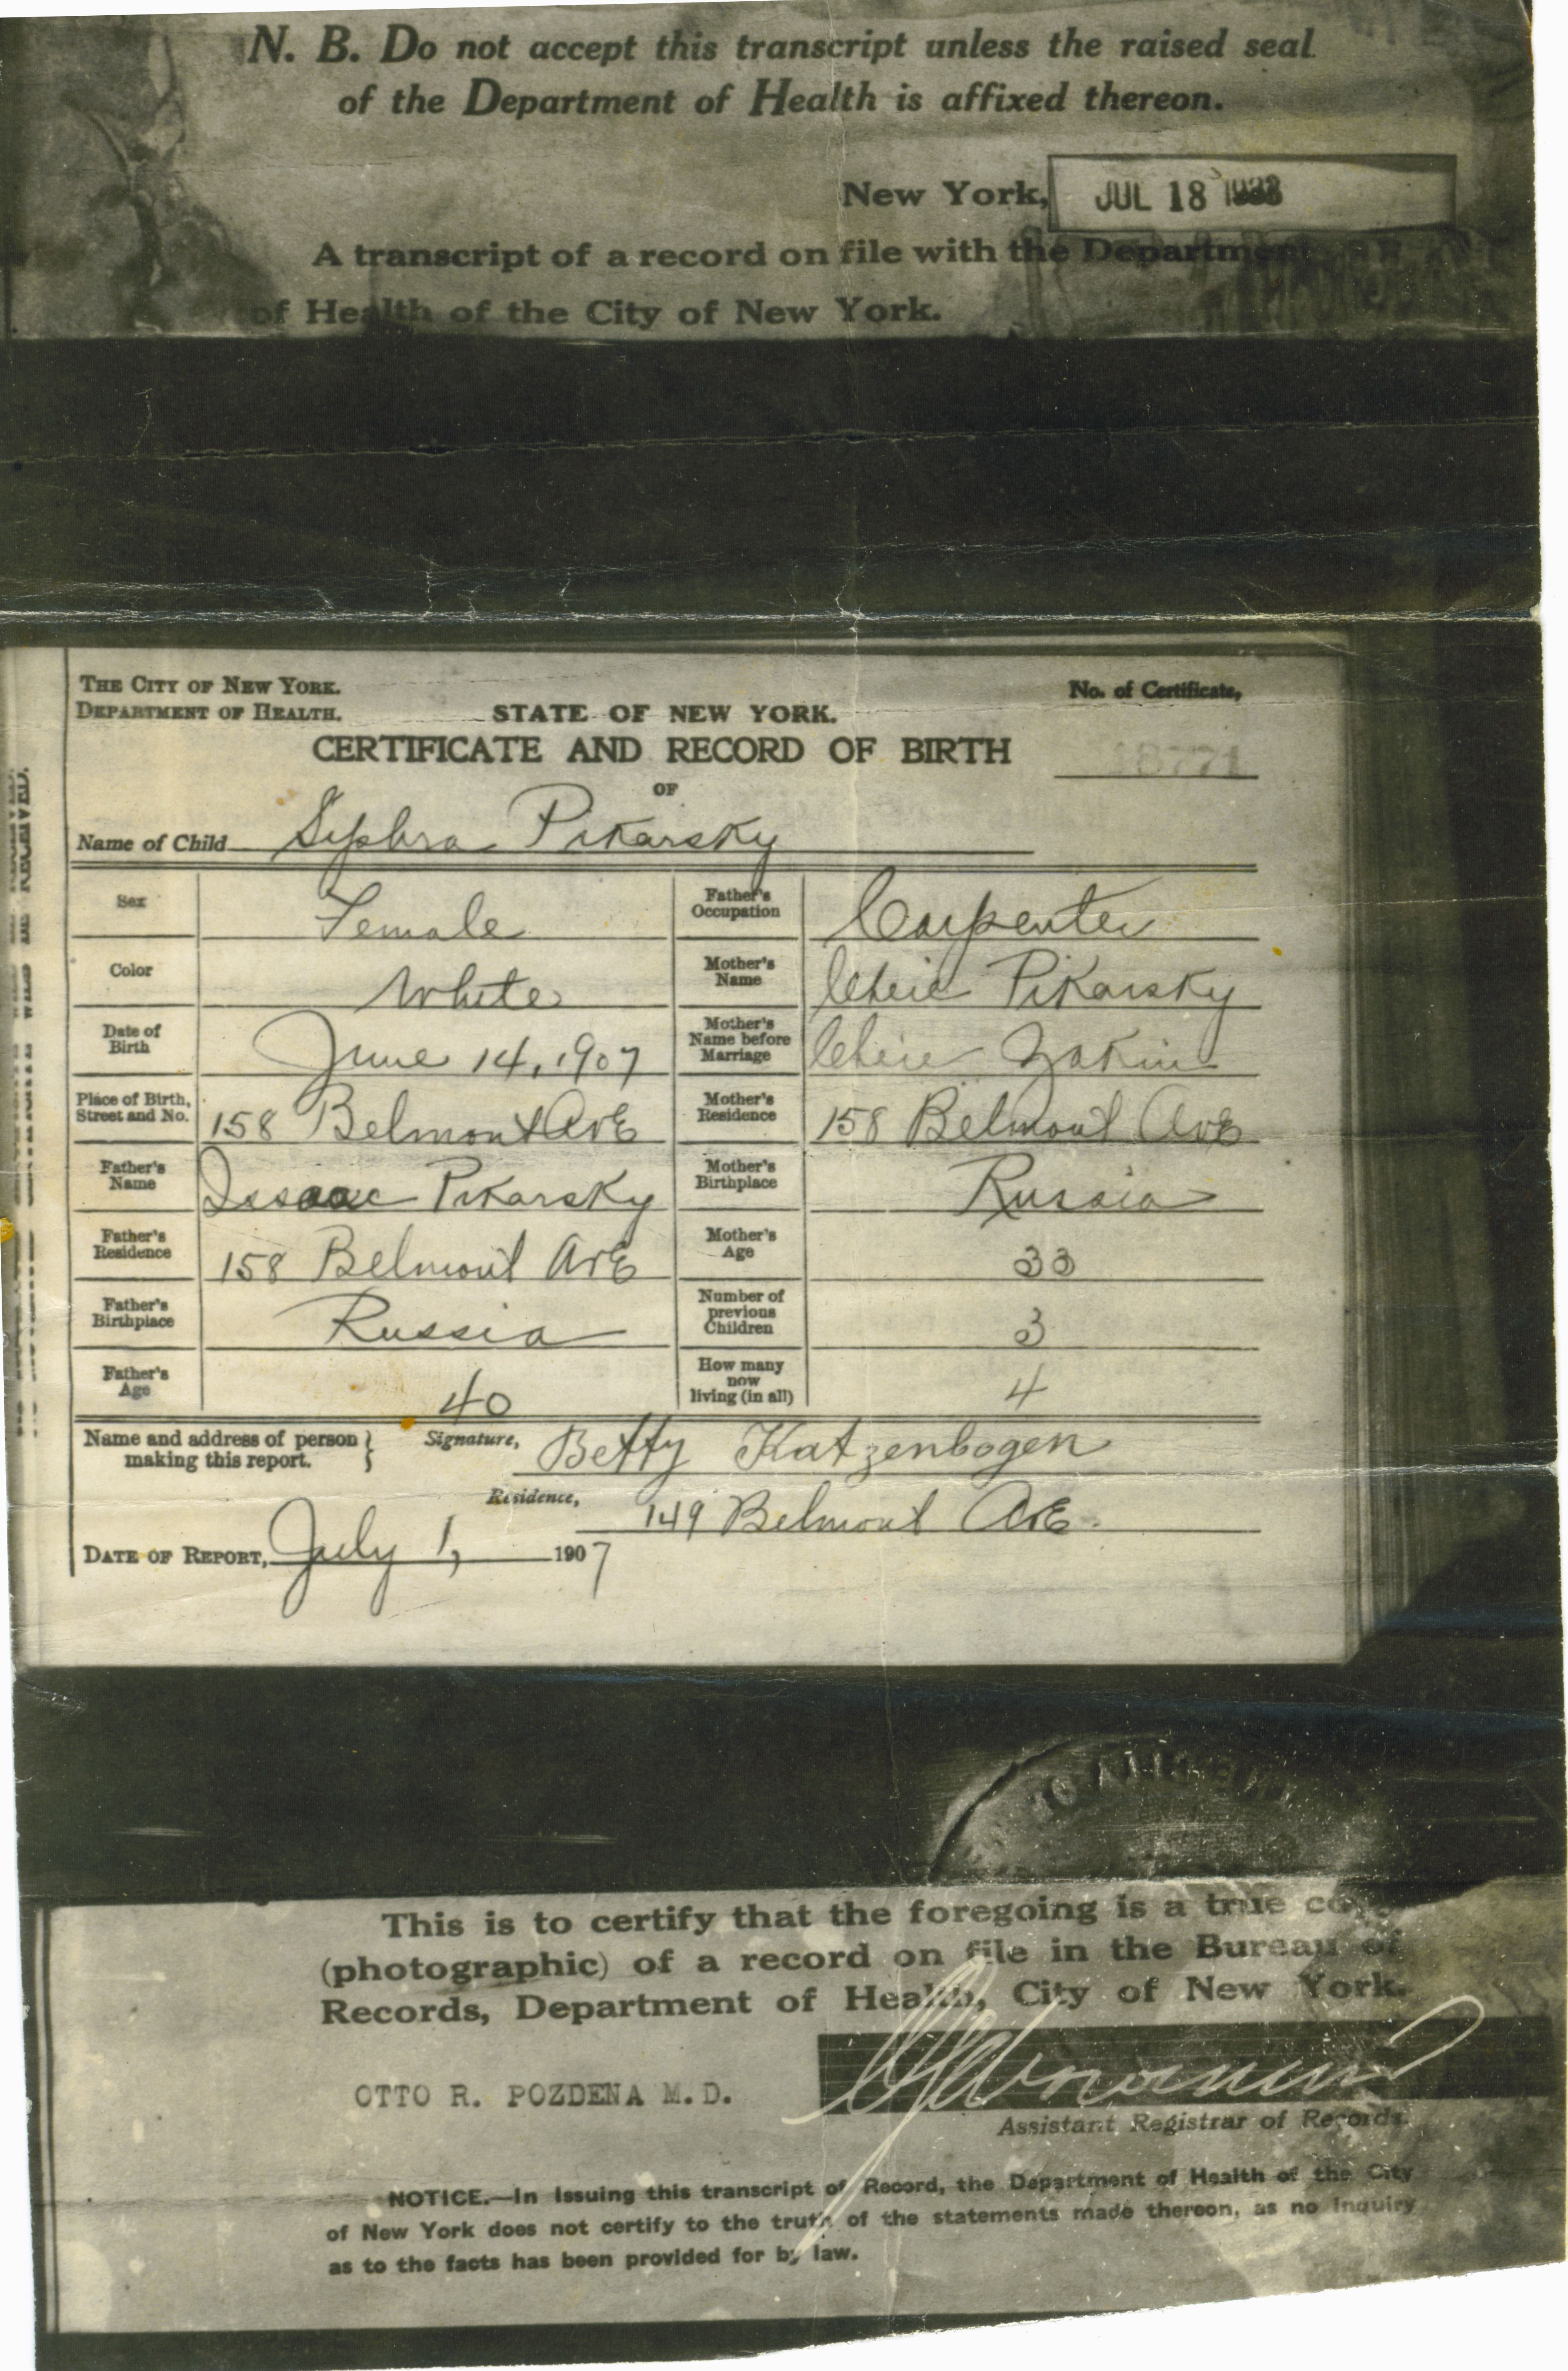 N. B. Do not accept this transcript unless the raised seal
of the Department of Health is affixed thereon.
New York, JUL 18
A transcript of a record on file with the Department
of Health of the City of New York.
THE CITY OF NEW YORK.
DEPARTMENT OF HEALTH.
STATE OF NEW YORK.
No. of Certificate,
CERTIFICATE AND RECORD OF BIRTH
18771
OF
Name of Child Siphra Pikarsky
Sex Female
Father's Occupation Carpenter
Color White
Mother's Name Cheie Pikarsky
Date of Birth June 14, 1907
Mother's Name before Marriage Cheie Zakin
Place of Birth, Street and No. 158 Belmont AvE
Mother's Residence 158 Belmont AvE
Father's Name Issaac Pikarsky
Mother's Birthplace Russia
Father's Residence 158 Belmont AvE
Mother's Age 33
Father's Birthplace Russia
Number of previous Children 3
Father's Age 40
How many now living (in all) 4
Name and address of person making this report.
Signature, Betty Katzenbogen
Residence, 149 Belmont AvE.
DATE OF REPORT, July 1, 1907
This is to certify that the foregoing is a true
(photographic) of a record on file in the Bureau of
Records, Department of Health, City of New York.
OTTO R. POZDENA M.D.
Assistant Registrar of Records.
NOTICE.—In issuing this transcript of Record, the Department of Health of the City
of New York does not certify to the truth of the statements made thereon, as no inquiry
as to the facts has been provided for by law.